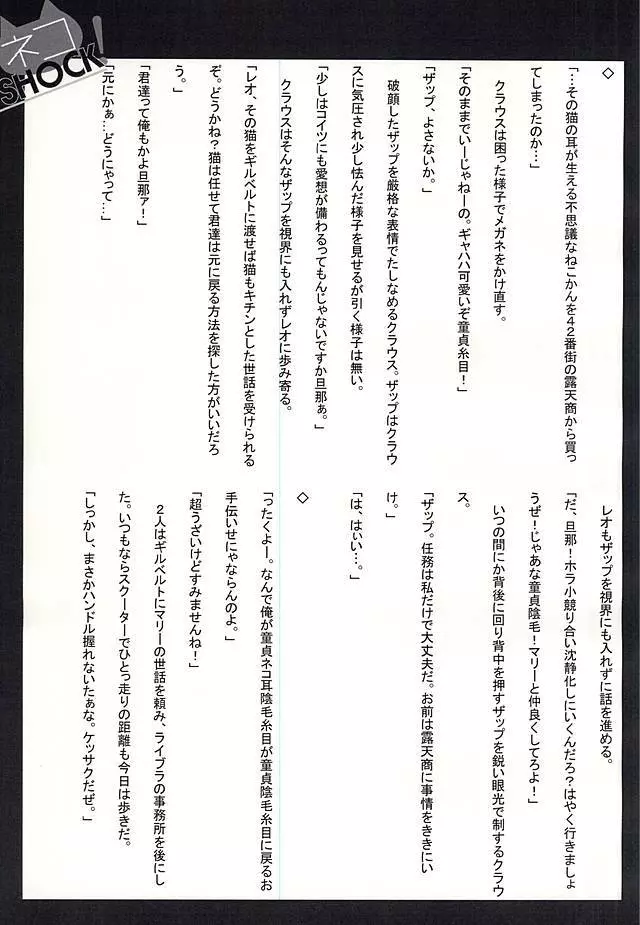 ネコ
SHOCK!
◇
「…その猫の耳が生える不思議なねこかんを42番街の露天商から買っ
てしまったのか…」
クラウスは困った様子でメガネをかけ直す。
「そのままでいーじゃねーの。ギャハハ可愛いぞ童貞糸目！」
「ザップ、よさないか。」
破顔したザップを厳格な表情でたしなめるクラウス。ザップはクラウ
スに気圧され少し怯んだ様子を見せるが引く様子は無い。
「少しはコイツにも愛想が備わるってもんじゃないですか旦那ぁ。」
クラウスはそんなザップを視界にも入れずレオに歩み寄る。
「レオ、その猫をギルベルトに渡せば猫もキチンとした世話を受けられる
ぞ。どうかね？猫は任せて君達は元に戻る方法を探した方がいいだろ
う。」
「君達って俺もかよ旦那ァ！」
「元にかぁ…どうにゃって…」
レオもザップを視界にも入れずに話を進める。
「だ、旦那！ホラ小競り合い沈静化しにいくんだろ？はやく行きましょ
うぜ！じゃあな童貞陰毛！マリーと仲良くしてろよ！」
いつの間にか背後に回り背中を押すザップを鋭い眼光で制するクラウ
ス。
「ザップ。任務は私だけで大丈夫だ。お前は露天商に事情をききにい
け。」
「は、はぃぃ…。」
◇
「ったくよー。なんで俺が童貞ネコ耳陰毛糸目が童貞陰毛糸目に戻るお
手伝いせにゃならんのよ。」
「超うざいけどすみませんね！」
2人はギルベルトにマリーの世話を頼み、ライブラの事務所を後にし
た。いつもならスクーターでひとっ走りの距離も今日は歩きだ。
「しっかし、まさかハンドル握れないたぁな。ケッサクだぜ。」